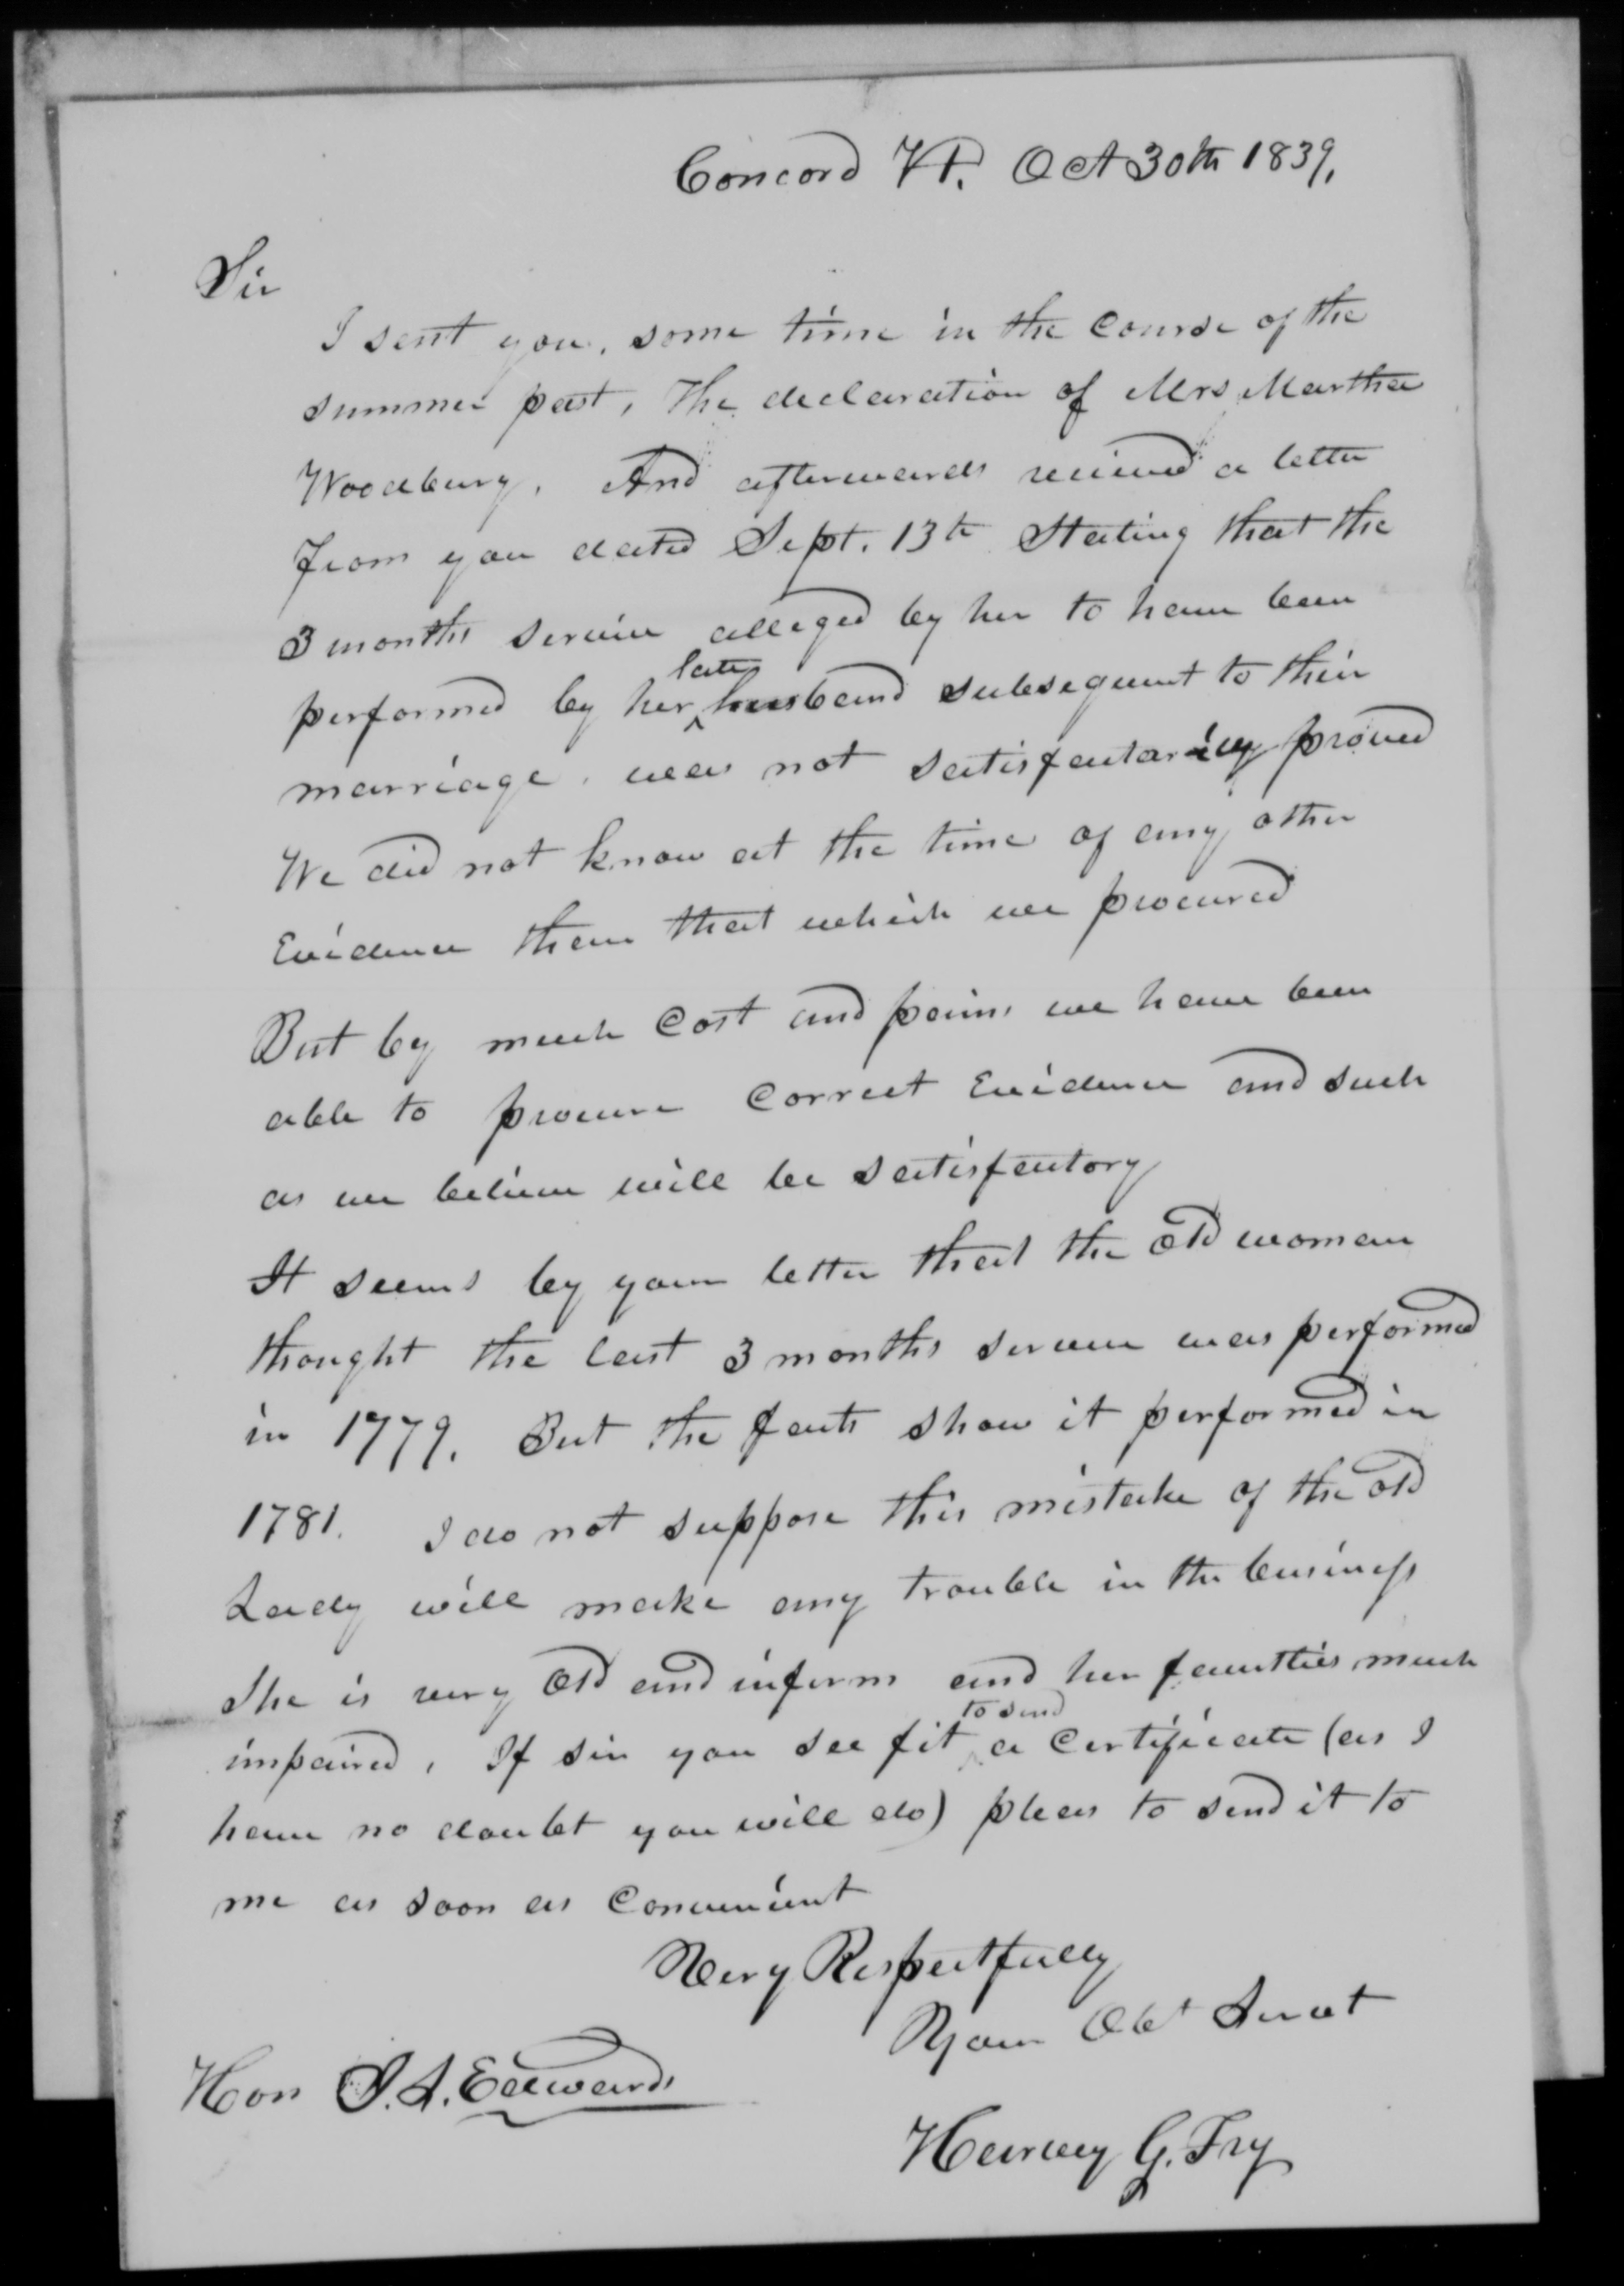 Concord Vt. Oct 30th 1839,
Sir
I sent you, some time in the Course of the
summer past, The declaration of Mrs Martha
Woodbury. And afterwards recieved a letter
from you dated Sept. 13th Stating that the
3 months service alleged by her to have been
late
performed by her ^ husband subsequent to their
marriage, was not satisfactarily proved
We did not know at the time of any other
Evidence than that which we procured
But by much Cost and pains we have been
able to procure Correct Evidence and such
as we believe will be satisfactory
It seems by your letter that the old woman
thought the last 3 months service was performed
in 1779. But the facts show it performed in
1781. I do not suppose this mistake of the old
Lady will make any trouble in the business
She is very Old and infirm and her faculties much
to send
impaired, If sir you see fit ^ a Certificate (as I
have no doubt you will do) pleas to send it to
me as soon as Convenient
Very Respectfully
Your Obt Servt
Hon J. L. Edwards
Harvey G. Fry